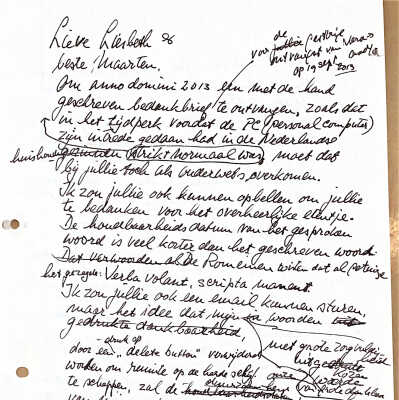 de
voor jullie gastvrije
ontvangst van Vera
op 19 sept 2013
Lieve Liesbeth &
beste Maarten.
Om anno domini 2013 een met de hand
geschreven bedankbrief te ontvangen, zoals dat
in het tijdperk voordat de PC (personal computer)
zijn intrede gedaan had in de Nederlandse
huishoudens gezinnen strikt normaal was, moet dat
bij jullie toch als ouderwets overkomen.
Ik zou jullie ook kunnen opbellen om jullie
te bedanken voor het overheerlijke etentje.
De houdbaarheidsdatum van het gesproken
woord is veel korter dan het geschreven woord.
Dat verwoorden al de Romeinen wisten dat al
het gezegde: Verba volant, scripta manent
Ik zou jullie ook een email kunnen sturen,
maar het idee dat mijn woorden
gedrukte dankbaarheid, met grote zorg
door een "delete button" verwijderd
worden om ruimte op de harde schijf
te scheppen, zal de